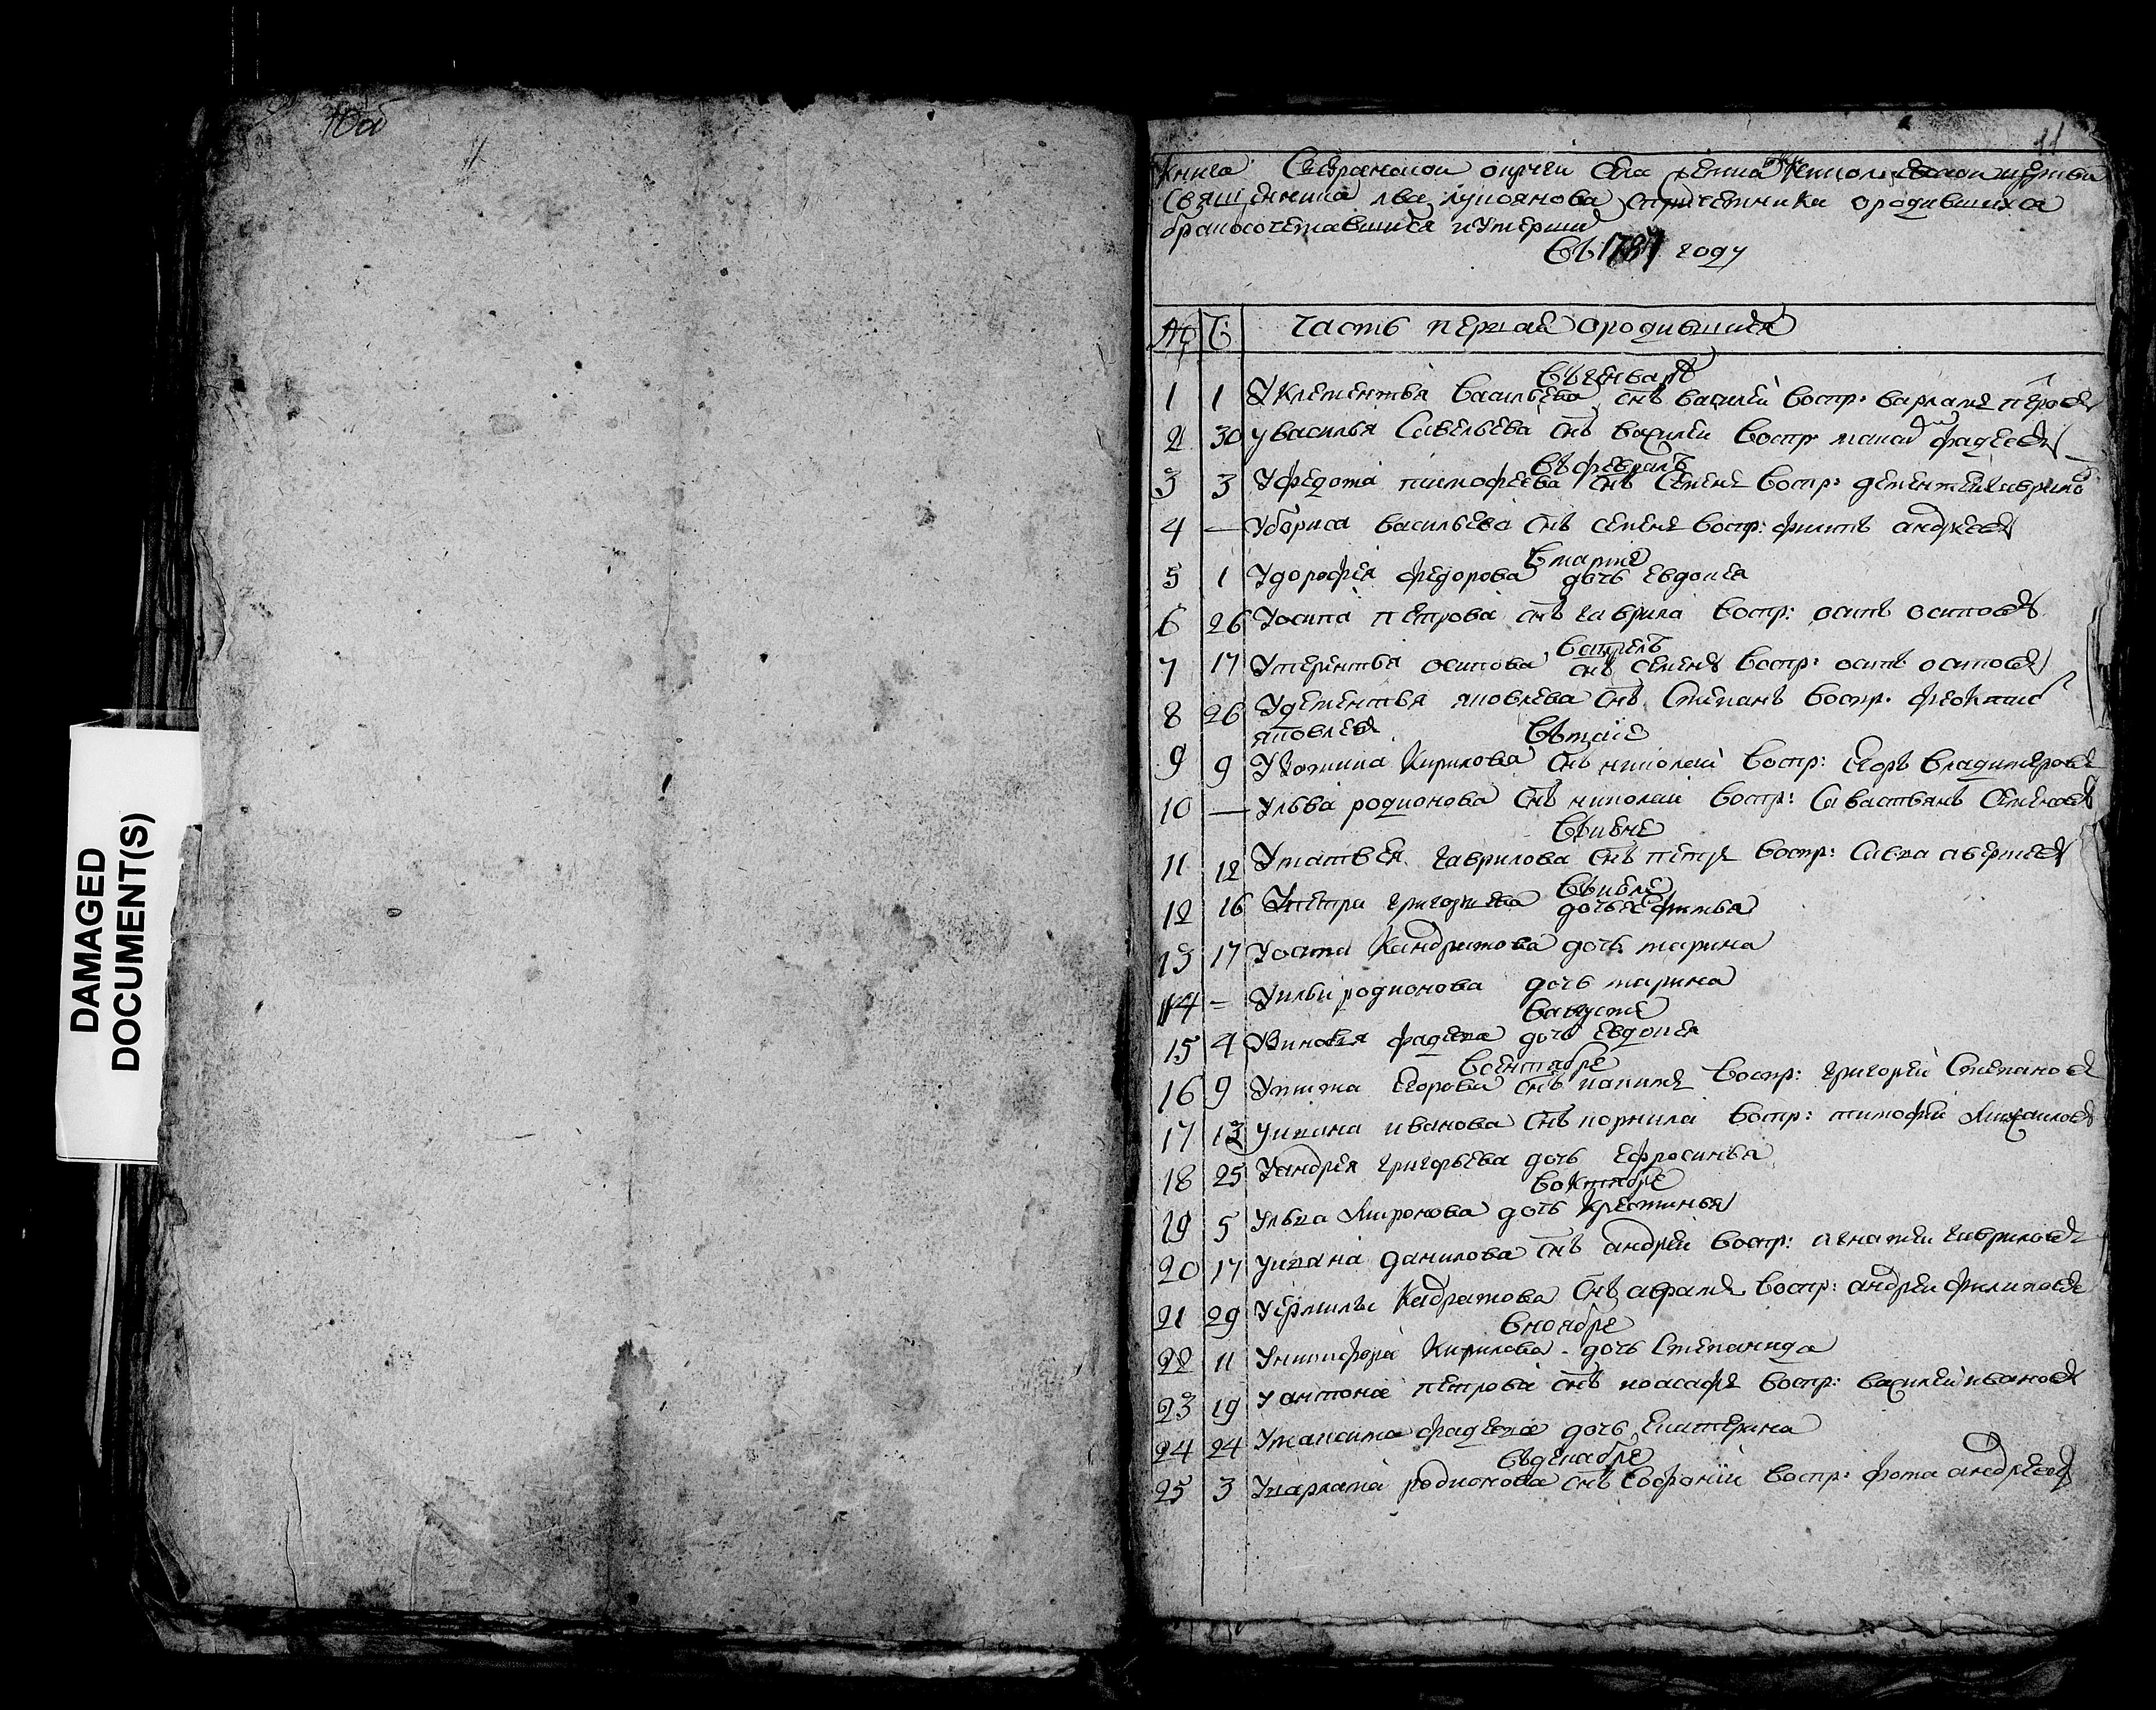 10об
DAMAGED
DOCUMENT(S)
11
Книга округи села церкви
священника лва лупоянова спричетники ородившихся
бракосочетавшихся и умерши
Въ 1787 году
Часть первая ородившихся
Въ генваре
1 1 У Клементья Васильева снъ василей воспр:
2 30 У василья Савельева снъ василей воспр фадеевъ
Въ февралѣ
3 3 У федота тимофеева снъ Семенъ воспр: дементей
4 — У бориса васильева снъ семенъ воспр: филипъ андреевъ
В марте
5 1 У дорофея федорова дочь Евдокея
6 26 У осипа петрова снъ гаврила воспр: осипъ осиповъ
В апрелѣ
7 17 У терентья осипова снъ семенъ воспр: осипъ осиповъ
8 26 У дементья яковлева снъ Степанъ воспр:
яковлевъ
Въ маие
9 9 У Кирилова снъ николай воспр: Егоръ владимеровъ
10 — У льва родионова снъ николай воспр: Савастьянъ Семеновъ
Въ июне
11 12 У матвея гаврилова снъ петръ воспр: Савва
Въ июле
12 16 У петра григорьева дочь
13 17 У осипа Кандратова дочь марина
14 — У ильи родионова дочь марина
В августе
15 4 У зиновея фадеева дочь Евдокея
В сентябре
16 9 У Егорова снъ воспр: григорей Степановъ
17 13 У ивана иванова снъ корнила воспр: тимофей Михаиловъ
18 25 У андрея григорьева дочь ефросинья
В октябре
19 5 У льва Миронова дочь Крестинья
20 17 У ивана данилова снъ андрей воспр: игнатей гавриловъ
21 29 У ермилы Кадратова снъ воспр: андрей филиповъ
В ноябре
22 11 У никифора Кирилова дочь Степанида
23 19 У антона петрова снъ иоасафъ воспр: василей ивановъ
24 24 У максима фадеева дочь Екатерина
Въ декабре
25 3 У варлама родионова снъ воспр: фома андреевъ